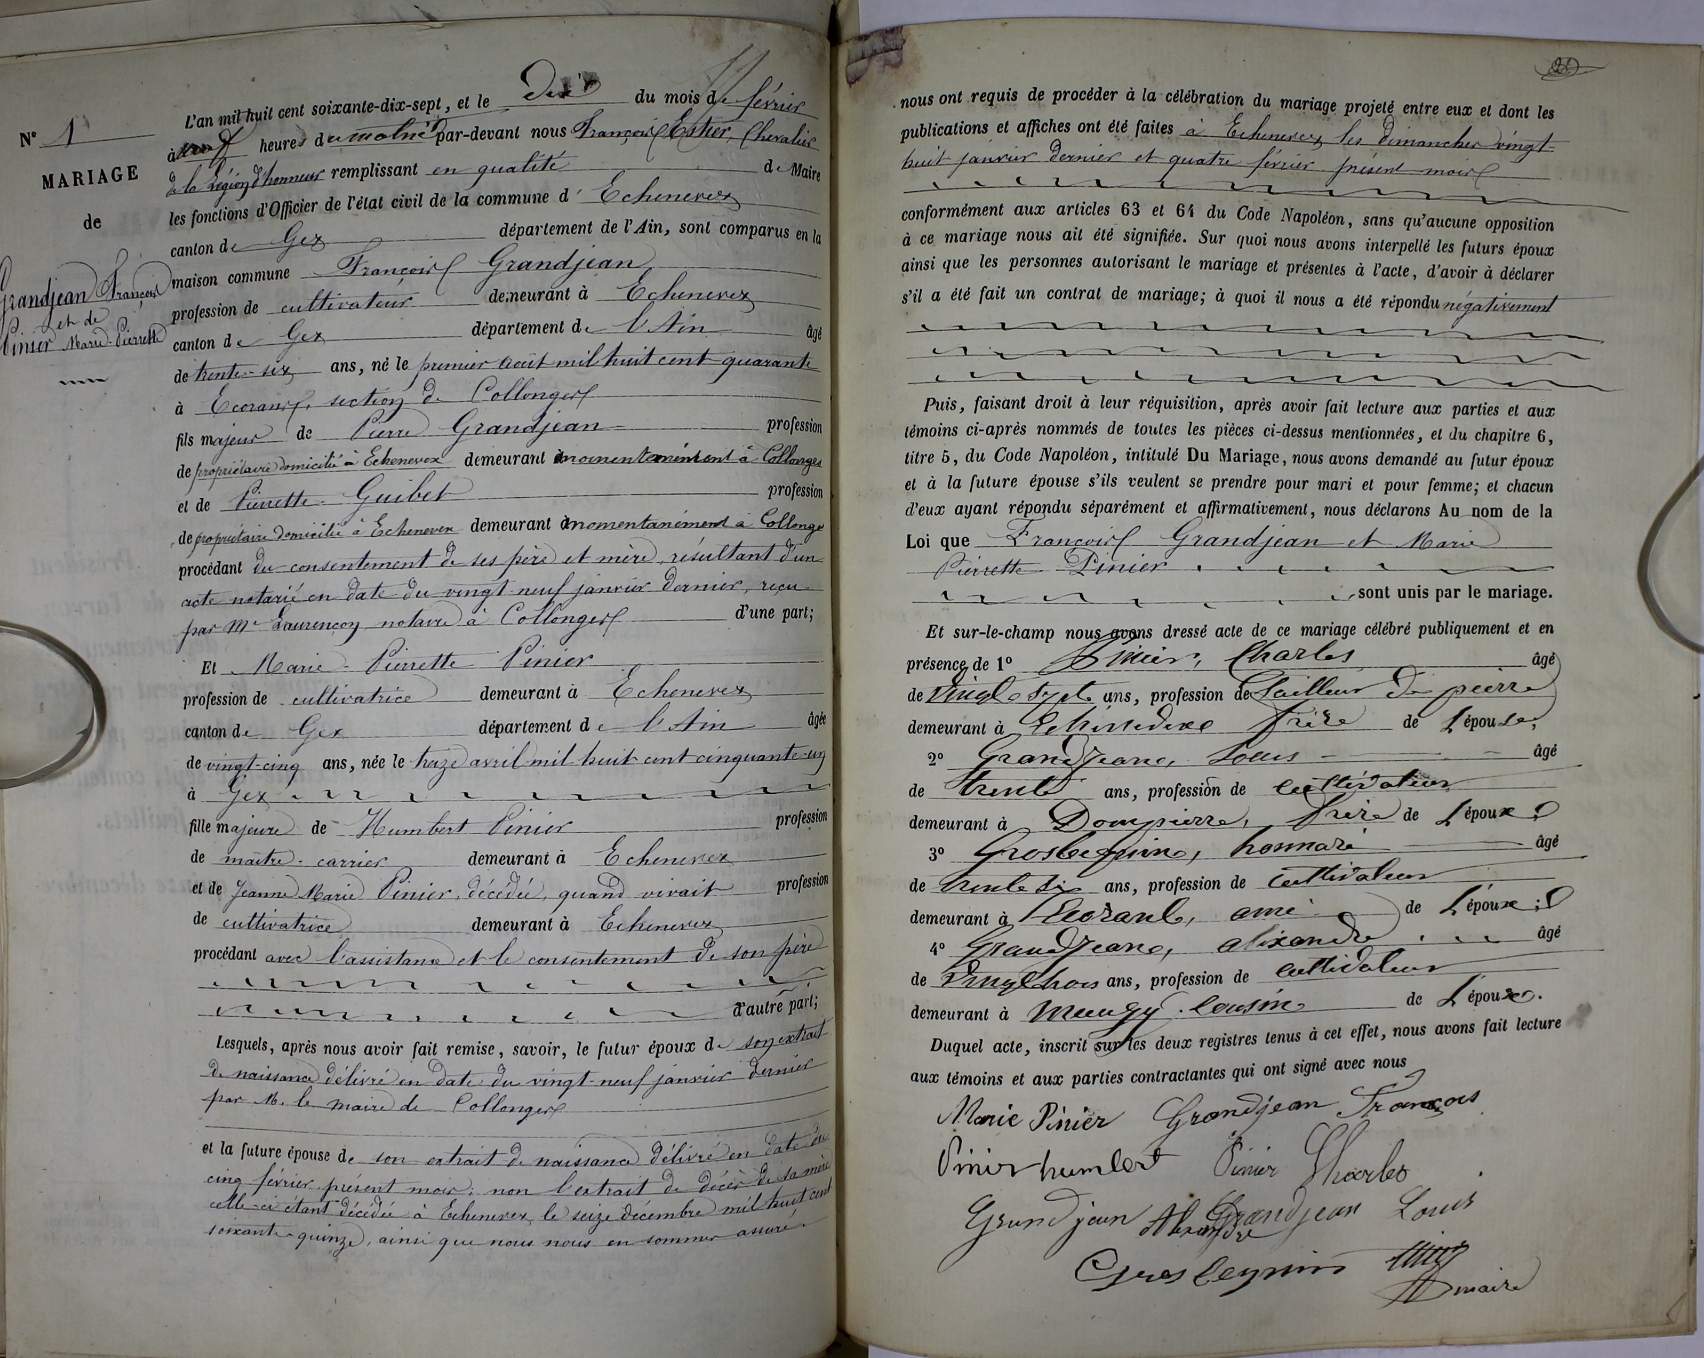 N° 1
MARIAGE
de
Grandjean François
et de
Pinier Marie-Pierrette
L'an mil huit cent soixante-dix-sept, et le dix du mois de février
à neuf heures du matin par-devant nous François Estier, Chevalier
de la Légion d'honneur remplissant en qualité de Maire
les fonctions d'Officier de l'état civil de la commune d'Echenevex
canton de Gex département de l'Ain, sont comparus en la
maison commune François Grandjean
profession de cultivateur demeurant à Echenevex
canton de Gex département de l'Ain âgé
de trente-six ans, né le premier août mil huit cent quarante
à Ecorans, section de Collonges
fils majeur de Pierre Grandjean profession
de propriétaire domicilié à Echenevex demeurant momentanément à Collonges
et de Pierrette Guibet profession
de propriétaire domicilié à Echenevex demeurant momentanément à Collonge
procédant du consentement de ses père et mère, résultant d'un
acte notarié en date du vingt-neuf janvier dernier, reçu
par Me Laurençon notaire à Collonges d'une part;
Et Marie-Pierrette Pinier
profession de cultivatrice demeurant à Echenevex
canton de Gex département de l'Ain âgée
de vingt-cinq ans, née le treize avril mil huit cent cinquante-un
à Gex
fille majeure de Humbert Pinier
profession
de maître-carrier demeurant à Echenevex
et de Jeanne Marie Pinier, décédée, quand vivait profession
de cultivatrice demeurant à Echenevex
procédant avec l'assistance et le consentement de son père
d'autre part;
Lesquels, après nous avoir fait remise, savoir, le futur époux de son extrait
de naissance délivré en date du vingt-neuf janvier dernier
par M. le maire de Collonges
et la future épouse de son extrait de naissance délivré en date du
cinq février présent mois; non l'extrait de décès de sa mère
celle-ci étant décédée à Echenevex, le seize décembre mil huit cent
soixante-quinze, ainsi que nous nous en sommes assuré.
20
nous ont requis de procéder à la célébration du mariage projeté entre eux et dont les
publications et affiches ont été faites à Echenevex les dimanches vingt-
huit janvier dernier et quatre février présent mois
conformément aux articles 63 et 64 du Code Napoléon, sans qu'aucune opposition
à ce mariage nous ait été signifiée. Sur quoi nous avons interpellé les futurs époux
ainsi que les personnes autorisant le mariage et présentes à l'acte, d'avoir à déclarer
s'il a été fait un contrat de mariage; à quoi il nous a été répondu négativement
Puis, faisant droit à leur réquisition, après avoir fait lecture aux parties et aux
témoins ci-après nommés de toutes les pièces ci-dessus mentionnées, et du chapitre 6,
titre 5, du Code Napoléon, intitulé Du Mariage, nous avons demandé au futur époux
et à la future épouse s'ils veulent se prendre pour mari et pour femme; et chacun
d'eux ayant répondu séparément et affirmativement, nous déclarons Au nom de la
Loi que François Grandjean et Marie
Pierrette Pinier
sont unis par le mariage.
Et sur-le-champ nous avons dressé acte de ce mariage célébré publiquement et en
présence de 1° Pinier, Charles âgé
de vingt sept ans, profession de tailleur de pierre
demeurant à frère de L'épouse;
2° Grandjean, Louis âgé
de trente ans, profession de cultivateur
demeurant à Dompierre, frère de L'époux;
3° Grosleynin, honnaré âgé
de trente six ans, profession de cultivateur
demeurant à Ecorant, ami de L'époux;
4° Grandjean, alixandre âgé
de vingt trois ans, profession de cultivateur
demeurant à cousin de L'époux.
Duquel acte, inscrit sur les deux registres tenus à cet effet, nous avons fait lecture
aux témoins et aux parties contractantes qui ont signé avec nous
Marie Pinier Grandjean François
Pinier humbert Pinier Charles
Grandjean Alexandre Grandjean Louis
Grosleynin
maire